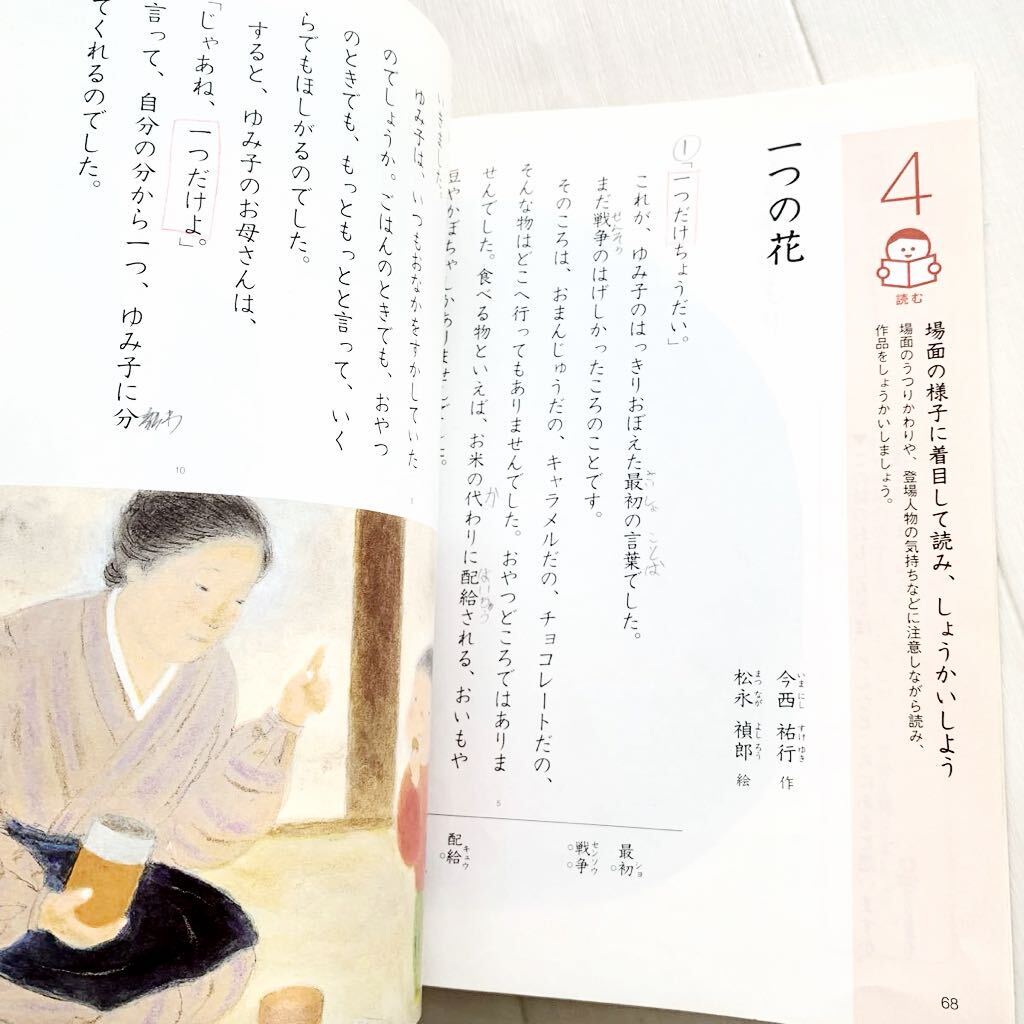 4
読む
場面の様子に着目して読み、しょうかいしよう
場面のうつりかわりや、登場人物の気持ちなどに注意しながら読み、
作品をしょうかいしましょう。
一つの花
今西 祐行 作
いまにし すけゆき
松永 禎郎 絵
まつなが よしろう
1
「一つだけちょうだい。」
これが、ゆみ子のはっきりおぼえた最初の言葉でした。
さいしょ ことば
まだ戦争のはげしかったころのことです。
せんそう
そのころは、おまんじゅうだの、キャラメルだの、チョコレートだの、
そんな物はどこへ行ってもありませんでした。おやつどころではありま
せんでした。食べる物といえば、お米の代わりに配給される、おいもや
か はいきゅう
豆やかぼちゃしかありませんでした。
5
最初
ショ
戦争
センソウ
配給
キュウ
68
ゆみ子は、いつもおなかをすかしていた
のでしょうか。ごはんのときでも、おやつ
のときでも、もっともっとと言って、いく
らでもほしがるのでした。
すると、ゆみ子のお母さんは、
「じゃあね、一つだけよ。」
言って、自分の分から一つ、ゆみ子に分
てくれるのでした。
10